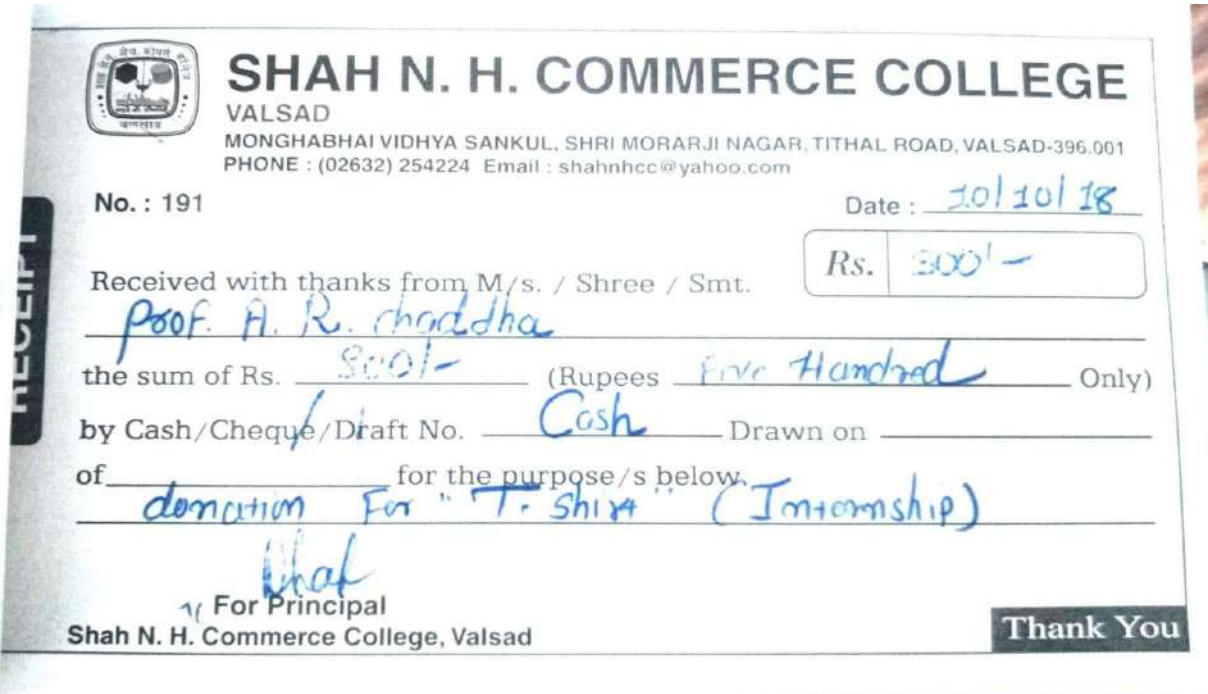 SHAH N. H. COMMERCE COLLEGE
VALSAD
MONGHABHAI VIDHYA SANKUL, SHRI MORARJI NAGAR, TITHAL ROAD, VALSAD-396.001
PHONE : (02632) 254224 Email : shahnhcc@yahoo.com
No. : 191
Date : 10/10/18
RECEIPT
Rs.
Received with thanks from M/s. / Shree / Smt.
Prof. A. R. chaddha
the sum of Rs. (Rupees Five Handred Only)
by Cash/Cheque/Draft No. Cash Drawn on
of for the purpose/s below.
donation For "T. Shirt" (Internship)
For Principal
Shah N. H. Commerce College, Valsad
Thank You